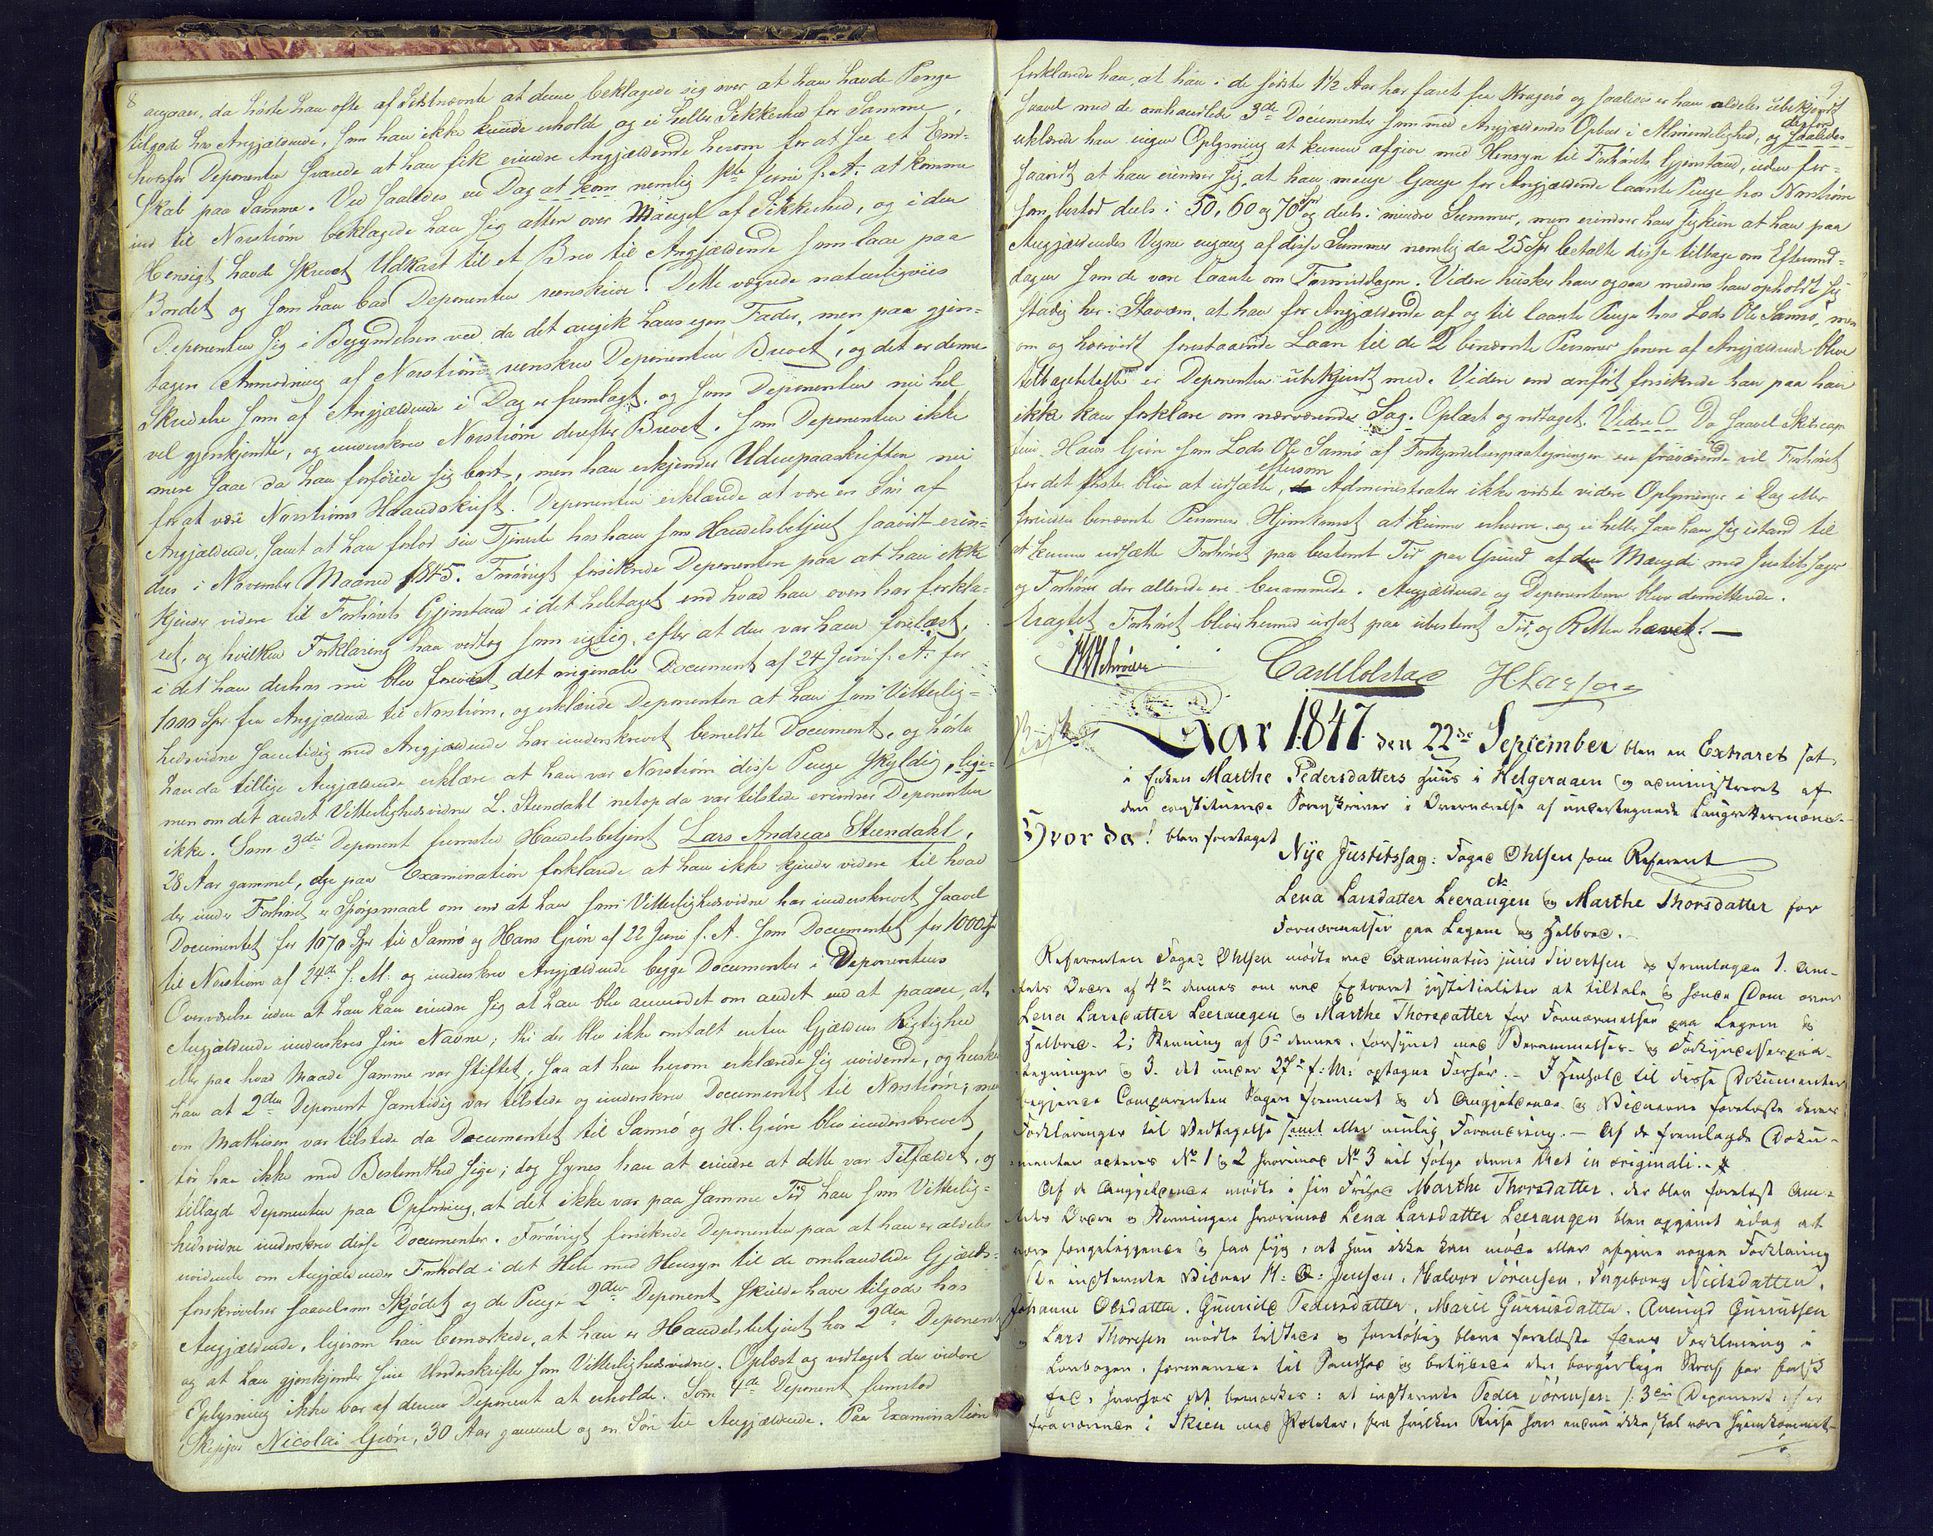 8
angaaer, da hørte han ofte af Sidstnævnte at denne beklagede sig over at han havde Penge
tilgode hos Angjældende, som han ikke kunde erholde og ei heller Sikkerhed for Samme,
hvorfor Deponenten svarede at han fik erindre Angjældende herom for at see et Em-
Skab paa Samme. Ved saaledes en Dag at kom nemlig 1ste Juni f. A. at komme
ind til Norstrøm beklagede han sig atter over Mangel af Sikkerhed, og i den
Hensigt havde skrevet Udkast til et Brev til Angjældende som laae paa
Bordet og som han bad Deponenten reenskrive. Dette vægrede naturligviis
Deponenten sig i Begyndelsen ved da det angik hans egen Fader, men paa gjen-
tagen Anmodning af Norstrøm reenskrev Deponenten Brevet, og det er denne
Skrivelse som af Angjældende i Dag er fremlagt, og som Deponenten nu hel
vel gjenkjendte, og underskrev Norstrøm derefter Brevet, som Deponenten ikke
mere saae da han forføiede sig bort, men han erkjender Udenpaaskriften nu
for at være Norstrøms Haandskrift. Deponenten erklærede at være en Søn af
Angjældende, samt at han forlod sin Tjeneste hos ham som Handelsbetjent saavidt erin-
dres i November Maaned 1845. Forøvrigt forsikrede Deponenten paa at han ikke
kjender videre til Forhørets Gjenstand i det heletaget end hvad han oven har forkla-
ret, og hvilken Forklaring han vedtog som rigtig, efter at den var ham forelæst,
i det han derhos nu blev foreviist det originale Document af 24 Juni f. A. for
1000 Spd fra Angjældende til Norstrøm, og erklærede Deponenten at han som Vitterlig-
hedsvidne samtidig med Angjældende har underskrevet bemeldte Document, og hørte
han da tillige Angjældende erklære at han var Norstrøm disse Penge skyldig, lige-
men om det andet Vitterlighedsvidne L. Stendahl netop da var tilstede erindrer Deponenten
ikke. Som 3die Deponent fremstod Handelsbetjent Lars Andreas Stendahl,
28 Aar gammel, der paa Examination forklarede at han ikke kjender videre til hvad
der under Forhøret er Spørgsmaal om end at han som Vitterlighedsvidne har underskrevet saavel
Documentet for 1070 Spd til Sannø og Hans Grøn af 22 Juni f. A. som Documentet for 1000 Spd
til Norstrøm af 24de s. M. og underskrev Angjældende begge Documenter i Deponentens
Overværelse uden at han kan erindre sig at han blev anmodet om andet end at paasee, at
Angjældende underskrev sine Navne; thi der blev ikke omtalt enten Gjældens Rigtighed
eller paa hvad Maade Samme var stiftet, saa at han herom erklærede sig uvidende, og husker
han at 2den Deponent samtidig var tilstede og underskrev Documentet til Norstrøm, men
om Mathisen var tilstede da Documentet til Sannø og H. Grøn blev underskrevet
tør han ikke med Bestemthed sige; dog synes han at erindre at dette var Tilfældet, og
tillagde Deponenten paa Opfordring, at det ikke var paa samme Tid han som Vitterlig-
hedsvidne underskrev disse Documenter. Forøvrigt forsikrede Deponenten paa at han er aldeles
uvidende om Angjældendes Forhold i det Hele med Hensyn til de omhandlede Gjælds-
forskrivelser saavelsom Skjødet og de Penge 2den Deponent skulde have tilgode hos
Angjældende, ligesom han bemærkede, at han er Handelsbetjent hos 2den Deponent
og at han gjenkjender sine Underskrifter som Vitterlighedsvidne. Oplæst og vedtaget da videre
Oplysning ikke var af denne Deponent at erholde. Som 4de Deponent fremstod
Skipper Nicolai Grøn, 30 Aar gammel og en Søn til Angjældende. Paa Examination
9
forklarede han, at han i de første 1½ Aar har faret fra Kragerø og saaledes er han aldeles ubekjendt
saavel med de omhandlede 3de Documenter som med Angjældendes Opbud i Almindelighed, og saaledes
desforud
erklærede han ingen Oplysning at kunne afgive med Hensyn til Forhørets Gjenstand, uden for-
saavidt at han erindrer sig, at han mange Gange for Angjældende laante Penge hos Norstrøm
som bestod deels i 50, 60 og 70 Spd og deels i mindre Summer, men erindrer han sig kun at han paa
Angjældendes Vegne engang af disse Summer nemlig da 25 Spd betalte disse tilbage om Eftermid-
dagen som de vare laante om Formiddagen. Videre husker han ogsaa medens han opholdt sig
stadig her i Staværn, at han for Angjældende af og til laante Penge hos Lods Ole Sannø, men
om og hvorvidt forestaaende Laan til de 2 benævnte Personer senere af Angjældende blev
tilbagebetalte er Deponenten ubekjendt med. Videre end anført forsikrede han paa han
ikke kan forklare om nærværende Sag. Oplæst og vedtaget. Videre! Da saavel Skibscap-
tein Hans Grøn som Lods Ole Sannø af Forkyndelsespaategningen er fraværende vil Forhøret
for det første blive at udsætte, eftersom Administrator ikke vidste videre Oplysninger i Dag eller
forinden benævnte Personers Hjemkomst at kunne erhverve, og ei heller saae han sig istand til
at kunne udsætte Forhøret paa bestemt Tid paa Grund af den Mængde med Justitssager
og Forhører der allerede ere berammede. Angjældende og Deponenterne blev demitterede.
Aragtet Forhøret bliver herved udsat paa ubestemt Tid, og Retten hævet. —
Schrøder Carl Holstad H Larsen
Aar 1847 den 22de September blev en Extraret sat
i Enken Marthe Pedersdatters Huus i Helgeraaen og administreret af
den constituerede Sorenskriver i Overværelse af undertegnede Laugrettesmænd.
Hvor da! blev foretaget
Nye Justitssag: Foged Ohlsen som Referent
Ctr
Lena Larsdatter Leerangen og Marthe Thorsdatter for
Fornærmelser paa Legem og Helbred. —
Referenten Foged Ohlsen mødte ved Examinatus juris Sivertsen og fremlagde 1. Am-
tets Ordre af 4de dennes om ved Extraret justitialiter at tiltale og søge Dom over
Lena Larsdatter Leerangen og Marthe Thorsdatter for Fornærmelser paa Legem og
Helbred. 2; Stevning af 6te dennes, forsynet med Berammelses- og Forkyndelsespaa-
tegninger og 3. det under 27de f: M: optagne Forhør. — I Henhold til disse Dokumenter
begjærede Comparenten Sagen fremmet og de Angjældende og Vidnerne forelæste deres
Forklaringer til Vedtagelse samt eller mulig Forandring. — Af de fremlagde Doku-
menter acteres No 1 og 2 hvorimod No 3 vil følge denne Act in originali. —
Af de Angjældende mødte i sin Frihed Marthe Thorsdatter, der blev forelæst Am-
tets Ordre og Stevningen hvorimod Lena Larsdatter Leerangen blev opgivet idag at
være sengeliggende og saa syg, at hun ikke kan møde eller afgive nogen Forklaring
De indstevnte Vidner H: O: Jensen, Halvor Sörensen, Ingeborg Nielsdatter,
Johanne Olsdatter, Gunnild Pedersdatter, Marie Gurrusdatter, Amund Gurrussen
og Lars Thorsen mødte tilstede og foreløbig bleve forelæste Eedens Forklaring i
Lovbogen, formanede til Sandhed og betydede den borgerlige Straf for falsk
Eed, hvorhos det bemærkes: at indstevnte Peder Sörensen /: 3die Deponent :/ er
fraværende i Skien med Poteter, fra hvilken Reise han endnu ikke skal være hjemkommet